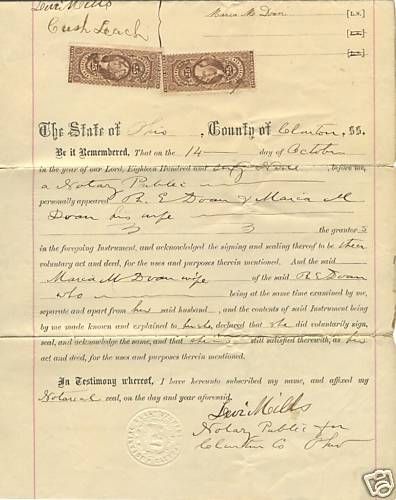 Levi Mills
Cush Leach
Maria M. Doan [L.S.]
[L.S.]
[L.S.]
The State of Ohio, County of Clinton, SS.
Be it Remembered, That on the 14 day of October
in the year of our Lord, Eighteen Hundred and sixty before me,
a Notary Public
personally appeared R. E Doan & Maria M
Doan his wife
the grantors
in the foregoing Instrument, and acknowledged the signing and sealing thereof to be their
voluntary act and deed, for the uses and purposes therein mentioned. And the said
Maria M Doan wife of the said R E Doan
who being at the same time examined by me,
separate and apart from her said husband, and the contents of said Instrument being
by me made known and explained to her she, declared that she did voluntarily sign,
seal, and acknowledge the same, and that she is still satisfied therewith, as her
act and deed, for the uses and purposes therein mentioned.
In Testimony whereof, I have hereunto subscribed my name, and affixed my
Notarial seal, on the day and year aforesaid.
Levi Mills
Notary Public for
Clinton Co Ohio